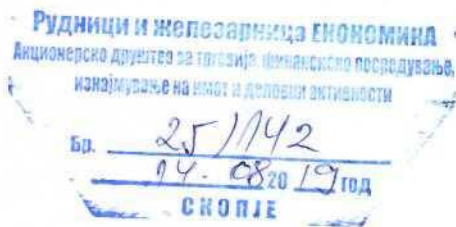 Рудници и железарница ЕКОНОМИКА
Акционерско друштво за трговија, финансиско посредување,
изнајмување на имот и деловни активности
Бр. 25/142
14. 08 20 19 год
СКОПЈЕ